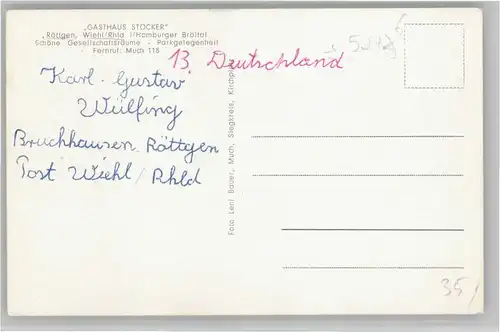 „GASTHAUS STOCKER"
Röttgen, Wiehl/Rhld. i/Homburger Bröltal
Schöne Gesellschaftsräume - Parkgelegenheit
Fernruf: Much 118
13. Deutschland
Karl-Gustav
Wülfing
Bruchhausen-Röttgen
Post Wiehl/Rhld
Foto Leni Bauer, Much, Siegkreis, Kirchpl.
35